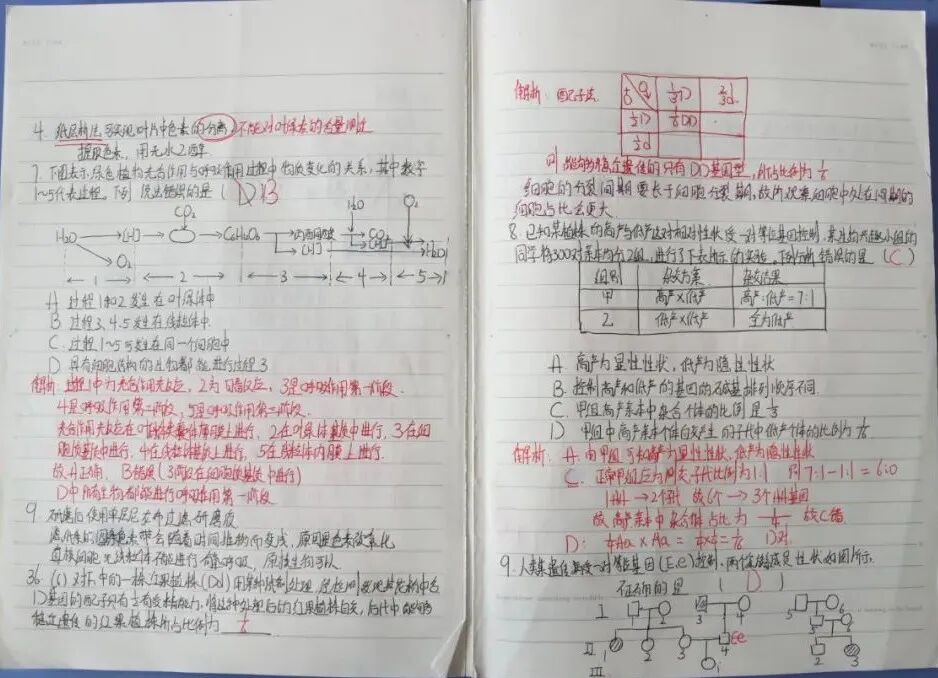 4. 纸层析法可实现叶片中色素的分离, 不能对叶绿素的含量测定
提取色素, 用无水乙醇.
7. 下图表示绿色植物光合作用与呼吸作用过程中物质变化的关系, 其中数字
1~5代表过程. 下列说法错误的是 ( D ) B
CO₂ H₂O O₂
H₂O [H] C₆H₁₂O₆ 丙酮酸 [H] CO₂ [H] H₂O
O₂
1 2 3 4 5
A 过程1和2发生在叶绿体中
B 过程3.4.5发生在线粒体中.
C. 过程1~5可发生在同一个细胞中
D 具有细胞结构的生物都能进行过程3
解析: 过程1中为光合作用光反应, 2为暗反应, 3是呼吸作用第一阶段.
4是呼吸作用第二阶段, 5是呼吸作用第三阶段.
光合作用光反应在叶绿体类囊体薄膜上进行, 2在叶绿体基质中进行, 3在细
胞质基质中进行, 4在线粒体基质上进行, 5在线粒体内膜上进行.
故A正确, B错误(3阶段在细胞质基质中进行)
D中所有生物都能进行呼吸作用第一阶段
9. 研磨后使用单层尼龙布过滤研磨液
滤纸条的色素带会随着时间推移而变浅, 原因是色素被氧化
真核细胞无线粒体不能进行有氧呼吸, 原核生物可以
36. (1) 对F₁中的一株红果植株(Dd)用某种试剂处理
D基因的配子只有½有受精能力, 将这种处理后的红果植株自交, 后代中能够
稳定遗传的红果植株所占比例为 1/6
解析: 配子法
♂ ♀ ⅓D ⅔d
½D 1/6 DD
½d
则能够稳定遗传的只有DD基因型, 所占比例为 1/6
细胞的分裂间期要长于细胞分裂期, 故所观察细胞中处在间期的
细胞占比会更大
8. 已知某植株的高产与低产这对相对性状受一对等位基因控制, 某生物兴趣小组的
同学将300对亲本均分2组, 进行了下表所示的实验, 下列分析错误的是 ( C )
组别 杂交方案 杂交结果
甲 高产×低产 高产:低产=7:1
乙 低产×低产 全为低产
A 高产为显性性状, 低产为隐性性状
B. 控制高产和低产的基因的碱基排列顺序不同.
C. 甲组高产亲本中杂合个体的比例是 ⅓
D 甲组中高产亲本个体自交产生的子代中低产个体的比例为 1/16
解析: A. 由甲组可知高产为显性性状, 低产为隐性性状
C. 正常甲组应为测交子代比例为1:1 则7:1-1:1=6:0
故高产亲本中杂合体占比为 1/4 故C错
D: ¼Aa × Aa = ¼×¼ = 1/16 D对.
9. 人类某遗传病受一对等位基因(E, e)控制,
( D )
I 1 2 3 4 5 6
II 1 2 3 4 Ee 5 6
III 1 2 3